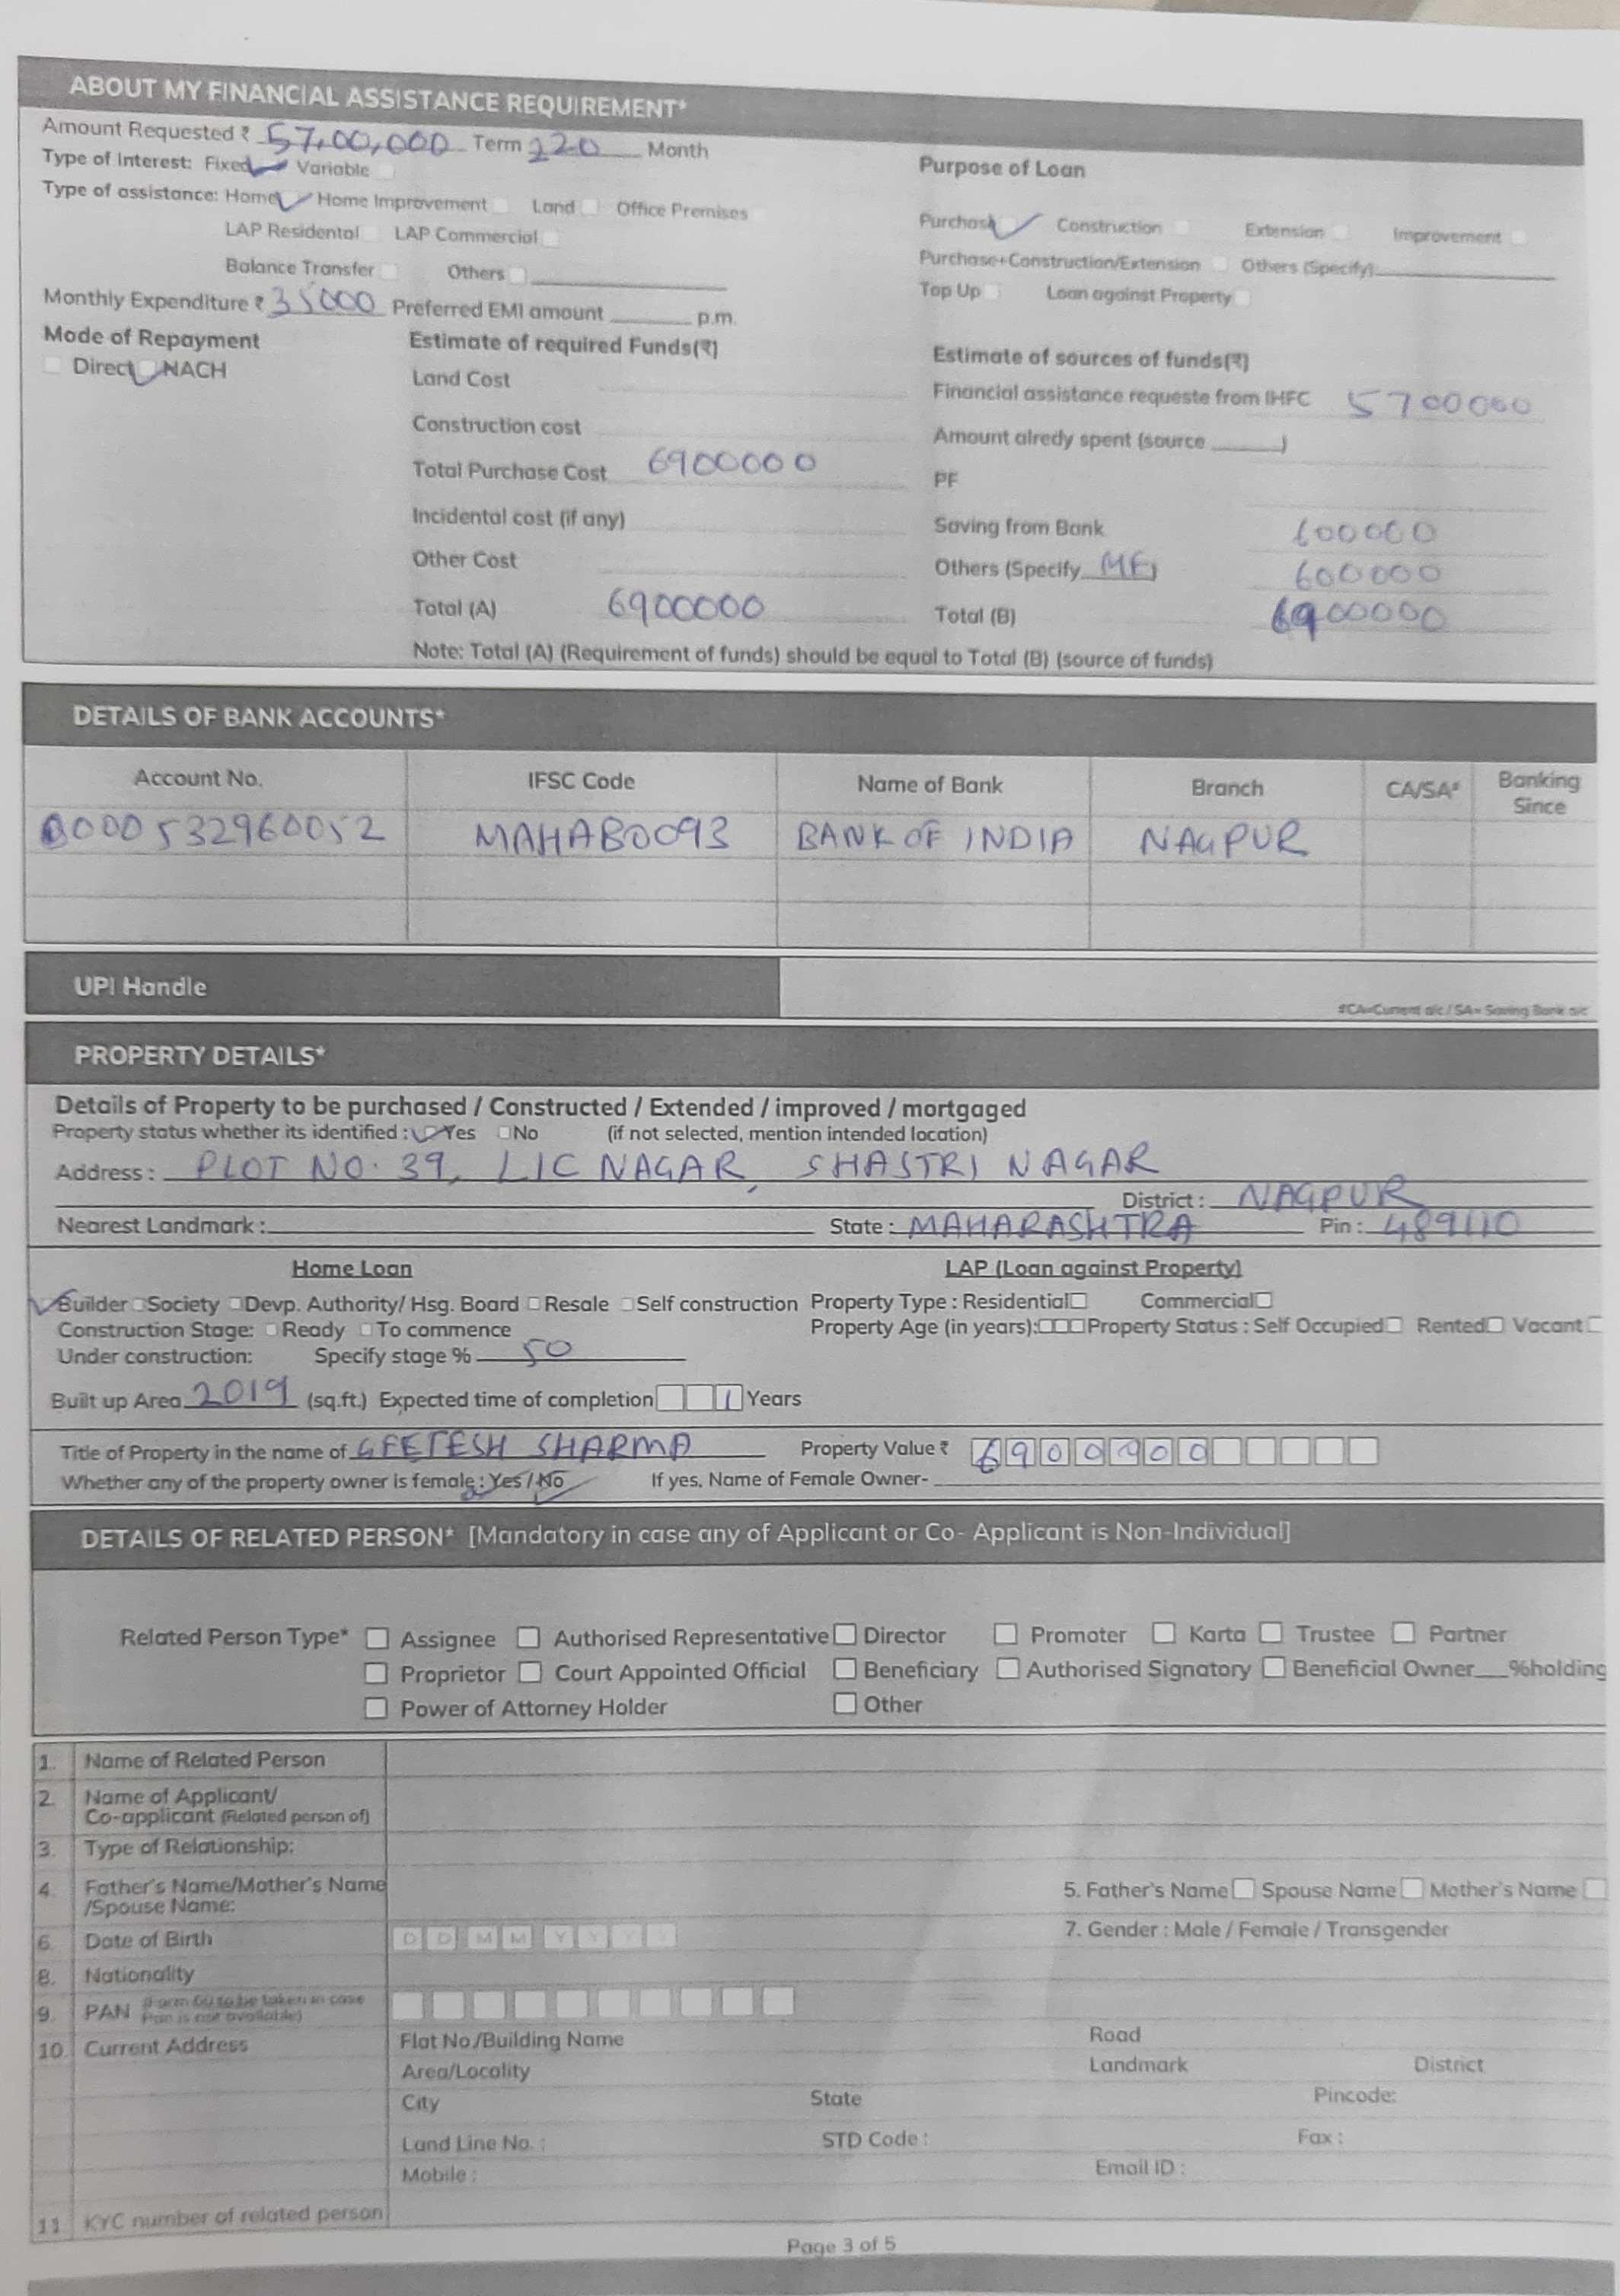 ABOUT MY FINANCIAL ASSISTANCE REQUIREMENT*
Amount Requested ₹ 57,00,000 Term 220 Month
Type of Interest: Fixed Variable
Type of assistance: Home Home Improvement Land Office Premises
LAP Residental LAP Commercial
Balance Transfer Others
Monthly Expenditure ₹ 35000 Preferred EMI amount p.m.
Purpose of Loan
Purchase Construction Extension Improvement
Purchase+Construction/Extension Others (Specify)
Top Up Loan against Property
Mode of Repayment
Direct NACH
Estimate of required Funds(₹)
Land Cost
Construction cost
Total Purchase Cost 6900000
Incidental cost (if any)
Other Cost
Total (A) 6900000
Estimate of sources of funds(₹)
Financial assistance requeste from IHFC 5700000
Amount alredy spent (source )
PF
Saving from Bank 600000
Others (Specify MF) 600000
Total (B) 6900000
Note: Total (A) (Requirement of funds) should be equal to Total (B) (source of funds)
DETAILS OF BANK ACCOUNTS*
Account No. IFSC Code Name of Bank Branch CA/SA# Banking Since
0000532960052 MAHAB0093 BANK OF INDIA NAGPUR
UPI Handle
#CA=Current a/c / SA= Saving Bank a/c
PROPERTY DETAILS*
Details of Property to be purchased / Constructed / Extended / improved / mortgaged
Property status whether its identified : Yes No (if not selected, mention intended location)
Address : PLOT NO. 39, LIC NAGAR, SHASTRI NAGAR
District : NAGPUR
Nearest Landmark : State : MAHARASHTRA Pin : 489110
Home Loan LAP (Loan against Property)
Builder Society Devp. Authority/ Hsg. Board Resale Self construction Property Type : Residential Commercial
Construction Stage: Ready To commence Property Age (in years): Property Status : Self Occupied Rented Vacant
Under construction: Specify stage % 50
Built up Area 2019 (sq.ft.) Expected time of completion 1 Years
Title of Property in the name of GEETESH SHARMA Property Value ₹ 6900000
Whether any of the property owner is female : Yes / No If yes, Name of Female Owner-
DETAILS OF RELATED PERSON* [Mandatory in case any of Applicant or Co- Applicant is Non-Individual]
Related Person Type* Assignee Authorised Representative Director Promoter Karta Trustee Partner
Proprietor Court Appointed Official Beneficiary Authorised Signatory Beneficial Owner %holding
Power of Attorney Holder Other
1. Name of Related Person
2. Name of Applicant/
Co-applicant (Related person of)
3. Type of Relationship:
4. Father's Name/Mother's Name
/Spouse Name:
5. Father's Name Spouse Name Mother's Name
6. Date of Birth D D M M Y Y Y Y 7. Gender : Male / Female / Transgender
8. Nationality
9. PAN (Form 60 to be taken in case
Pan is not available)
10. Current Address Flat No./Building Name Road
Area/Locality Landmark District
City State Pincode:
Land Line No. : STD Code : Fax :
Mobile : Email ID :
11 KYC number of related person
Page 3 of 5